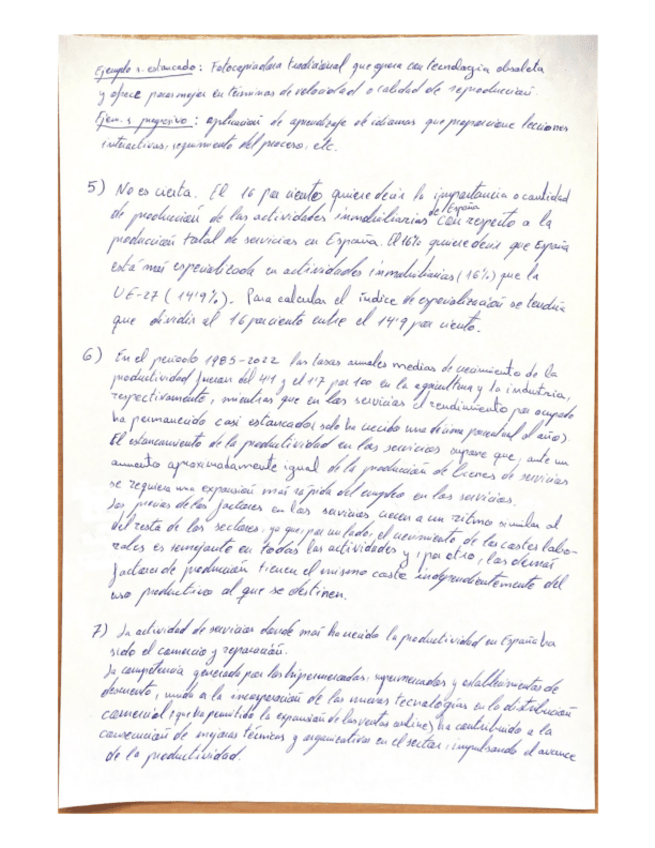 Ejemplo s. estancado: Fotocopiadora tradicional que opera con tecnología obsoleta
y ofrece pocas mejoras en términos de velocidad o calidad de reproducción.
Ejem. s. progresivo: aplicación de aprendizaje de idiomas que proporcione lecciones
interactivas, seguimiento del proceso, etc.
5) No es cierta. El 16 por ciento quiere decir la importancia o cantidad
de producción de las actividades inmobiliarias de España con respecto a la
producción total de servicios en España. El 16% quiere decir que España
está más especializada en actividades inmobiliarias (16%) que la
UE-27 (14'9%). Para calcular el índice de especialización se tendría
que dividir el 16 por ciento entre el 14'9 por ciento.
6) En el periodo 1985-2022 las tasas anuales medias de crecimiento de la
productividad fueron del 4'1 y el 1'7 por 100 en la agricultura y la industria,
respectivamente, mientras que en los servicios el rendimiento por ocupado
ha permanecido casi estancado (solo ha crecido una décima porcentual al año).
El estancamiento de la productividad en los servicios supone que, ante un
aumento aproximadamente igual de la producción de bienes de servicios
se requiera una expansión más rápida del empleo en los servicios.
Los precios de los factores en los servicios crecen a un ritmo similar al
del resto de los sectores, ya que, por un lado, el crecimiento de los costes labo-
rales es semejante en todas las actividades y, por otro, los demás
factores de producción tienen el mismo coste independientemente del
uso productivo al que se destinen.
7) La actividad de servicios donde más ha crecido la productividad en España ha
sido el comercio y reparación.
La competencia generada por los hipermercados, supermercados y establecimientos de
descuento, unido a la incorporación de las nuevas tecnologías en la distribución
comercial (que ha permitido la expansión de las ventas online) ha contribuido a la
consecución de mejoras técnicas y organizativas en el sector, impulsando el avance
de la productividad.